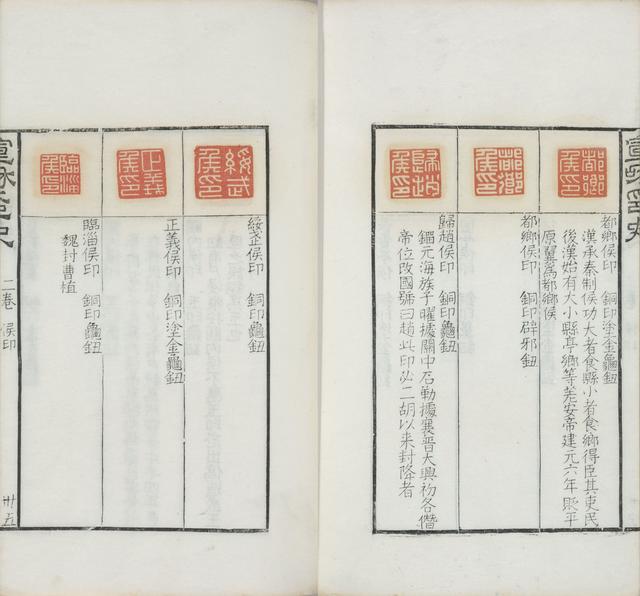 都鄉侯印
都鄉侯印 銅印塗金龜鈕
漢承秦制侯功大者食縣小者食鄉得臣其吏民
後漢始有大小縣亭鄉等差安帝建元六年貶平
原翼為都鄉侯
都鄉侯印
都鄉侯印 銅印辟邪鈕
歸趙侯印
歸趙侯印 銅印龜鈕
鎦元海族子曜據關中石勒據襄晉大興初各僭
帝位改國號曰趙此印必二胡以來封降者
綏武侯印
綏武侯印 銅印龜鈕
正義侯印
正義侯印 銅印塗金龜鈕
臨淄侯印
臨淄侯印 銅印龜鈕
魏封曹植
宣和印史 二卷 侯印 卅五